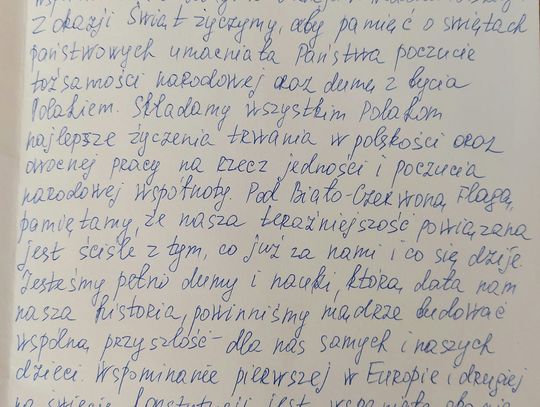 Z okazji Świąt życzymy, aby pamięć o świętach
państwowych umacniała Państwa poczucie
tożsamości narodowej oraz dumę z bycia
Polakiem. Składamy wszystkim Polakom
najlepsze życzenia trwania w polskości oraz
owocnej pracy na rzecz jedności i poczucia
narodowej wspólnoty. Pod Biało-Czerwoną Flagą,
pamiętamy, że nasza teraźniejszość powiązana
jest ściśle z tym, co już za nami i co się dzieje.
Jesteśmy pełni dumy i nauki, którą dała nam
nasza historia, powinniśmy mądrze budować
wspólną przyszłość - dla nas samych i naszych
dzieci. Wspominanie pierwszej w Europie i drugiej
na świecie Konstytucji jest